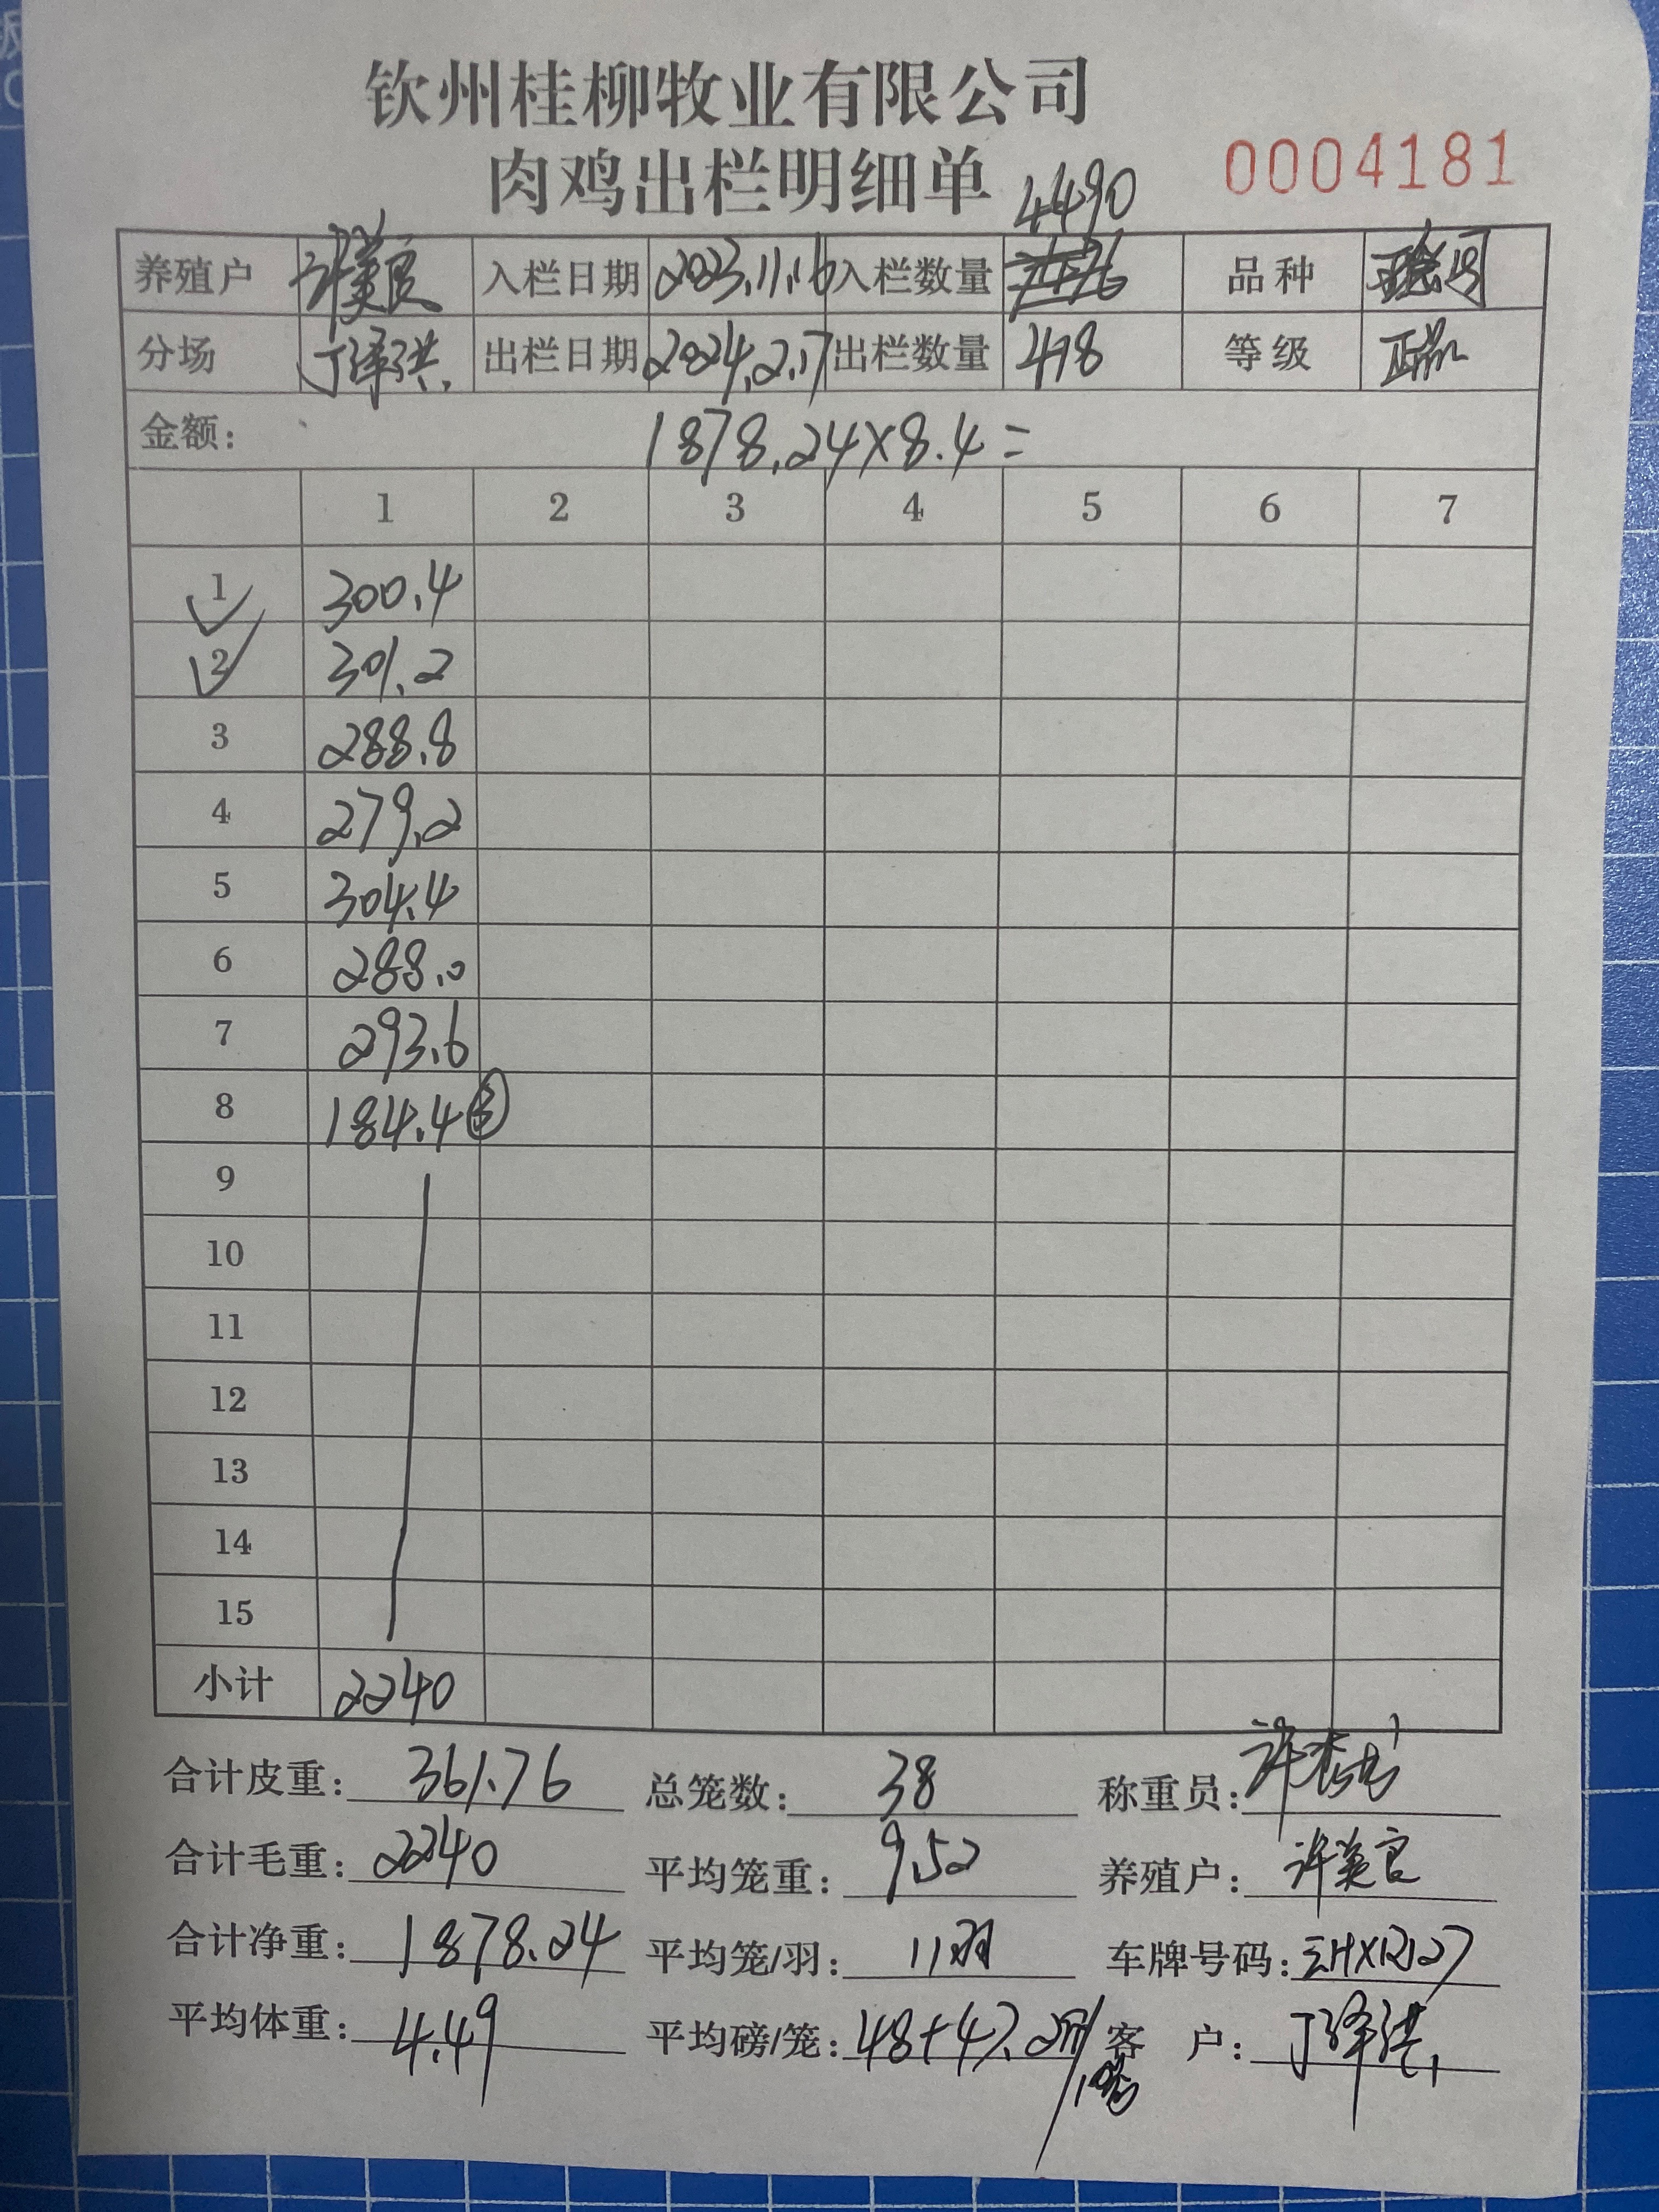 钦州桂柳牧业有限公司
肉鸡出栏明细单 0004181
4490
养殖户 许美良 入栏日期 2023.11.16 入栏数量 品种
分场 丁泽洪. 出栏日期 2024.2.17 出栏数量 418 等级
金额: 1878.24×8.4=
1 2 3 4 5 6 7
1 300.4
2 301.2
3 288.8
4 279.2
5 304.4
6 288.0
7 293.6
8 184.4
9
10
11
12
13
14
15
小计 2240
合计皮重: 361.76 总笼数: 38 称重员:
合计毛重: 2240 平均笼重: 9.52 养殖户: 许美良
合计净重: 1878.24 平均笼/羽: 11羽 车牌号码:
平均体重: 4.49 平均磅/笼: 48+47.2 客 户: 丁泽洪